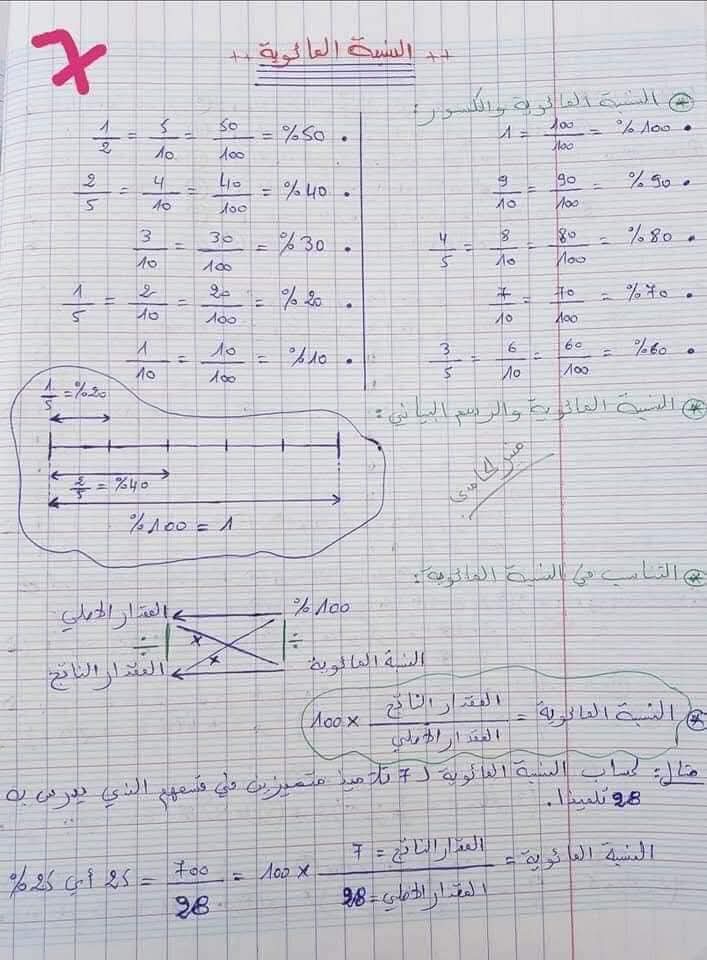 7
++ النسبة المائوية ++
* النسبة المائوية والكسور:
• %100 = 100/100 = 1
• %90 = 90/100 = 9/10
• %80 = 80/100 = 8/10 = 4/5
• %70 = 70/100 = 7/10
• %60 = 60/100 = 6/10 = 3/5
• %50 = 50/100 = 5/10 = 1/2
• %40 = 40/100 = 4/10 = 2/5
• %30 = 30/100 = 3/10
• %20 = 20/100 = 2/10 = 1/5
• %10 = 10/100 = 1/10
* النسبة المائوية والرسم البياني:
1/5 = %20
2/5 = %40
%100 = 1
* التناسب في النسبة المائوية:
%100 المقدار الاصلي
÷ × × ÷
النسبة المائوية المقدار الناتج
* النسبة المائوية = المقدار الناتج / المقدار الاصلي × 100
مثال: لحساب النسبة المائوية لـ 7 تلاميذ متميزين في قسمهم الذي يدرس به
28 تلميذا.
النسبة المائوية = المقدار الناتج = 7 / المقدار الاصلي = 28 × 100 = 700/28 = 25 أي 25 %